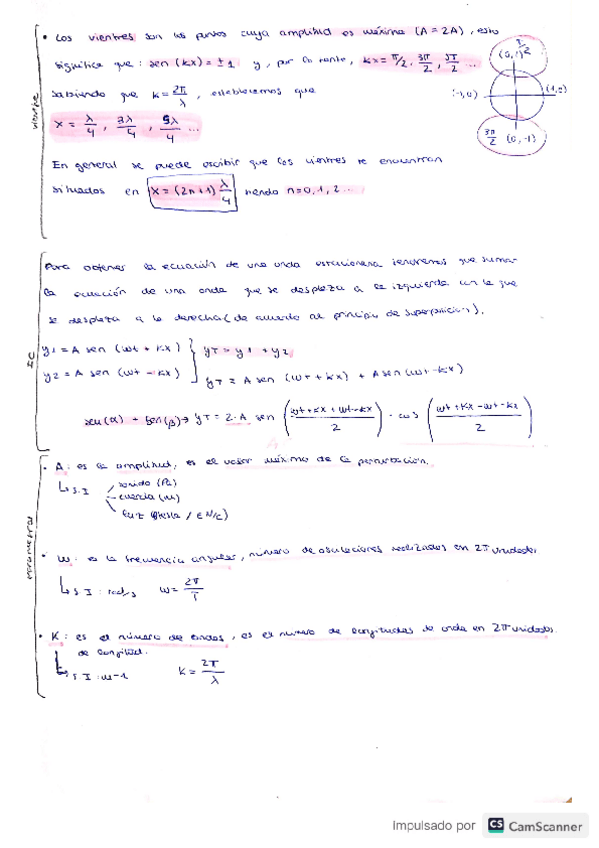 vientre
• Los vientres son los puntos cuya amplitud es máxima (A = 2A), esto
significa que: sen (kx) = ± 1 y, por lo tanto, kx = π/2, 3π/2, 5π/2 ...
sabiendo que k = 2π/λ, establecemos que
x = λ/4, 3λ/4, 5λ/4 ...
(-1,0) (1,0)
3π/2 (0,-1)
En general se puede escribir que los vientres se encuentran
situados en x = (2n+1) λ/4 siendo n=0,1,2...
Para obtener la ecuación de una onda estacionaria tendremos que sumar
la ecuación de una onda que se desplaza a la izquierda con la que
se desplaza a la derecha (de acuerdo al principio de superposición).
y1 = A sen (wt + kx)
y2 = A sen (wt - kx)
yT = y1 + y2
yT = A sen (wt + kx) + A sen (wt - kx)
sen(α) + sen(β) → yT = 2·A sen (wt+kx+wt-kx / 2) · cos (wt+kx-wt-kx / 2)
parámetros
• A: es la amplitud, es el valor máximo de la perturbación.
↳ S.I
sonido (Pa)
cuerda (m)
luz (Tesla / E N/C)
• w: es la frecuencia angular, número de oscilaciones realizadas en 2π unidades
↳ S.I: rad/s w = 2π/T
• K: es el número de ondas, es el número de longitudes de onda en 2π unidades
de longitud.
↳ S.I: m-1 K = 2π/λ
Impulsado por CS CamScanner